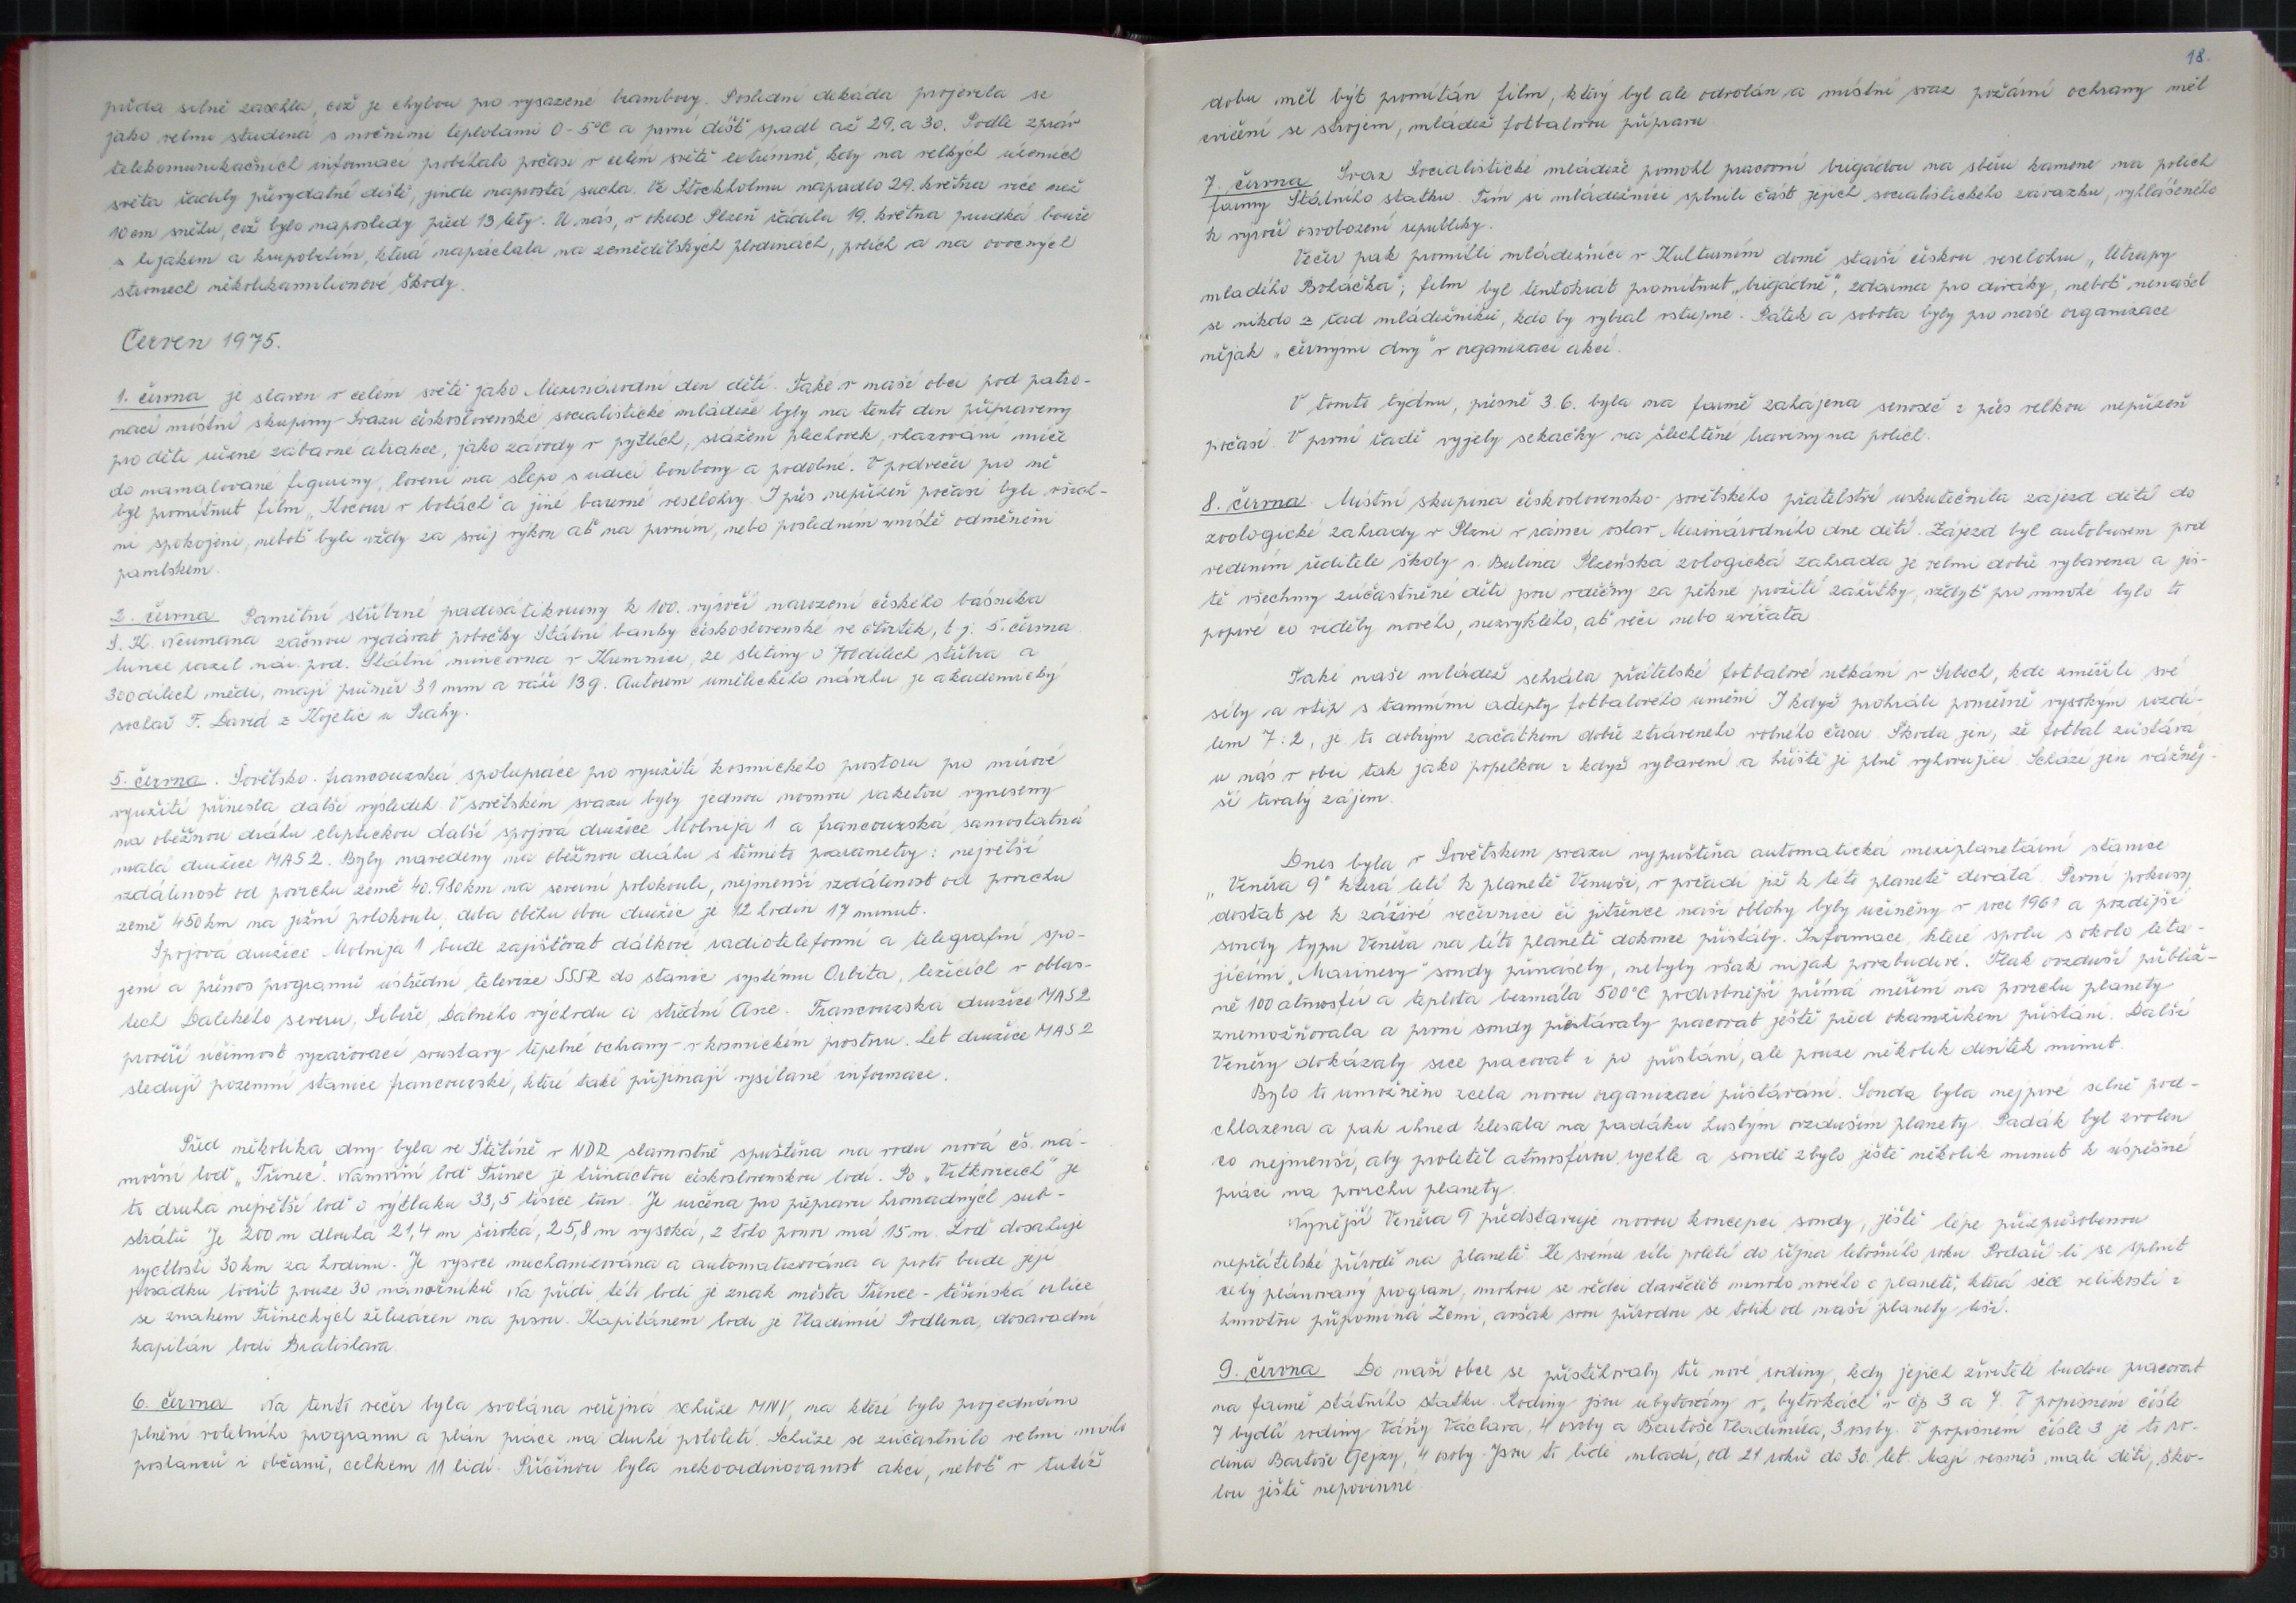 půda silně zaschla, což je chybou pro vysazené brambory. Poslední dekáda projevila se
jako velmi studená s nočními teplotami 0-5°C a první déšť spadl až 29. a 30. Podle zpráv
telekomunikačních informací probíhalo počasí v celém světě extrémně, kdy na velkých územích
světa řádily převydatné deště, jinde naprostá sucha. Ve Stockholmu napadlo 29. května více než
10 cm sněhu, což bylo naposledy před 13 lety. U nás, v okrese Plzeň řádila 19. května prudká bouře
s lijákem a krupobitím, která napáchala na zemědělských plodinách, polích a na ovocných
stromech několikamilionové škody.
Červen 1975.
1. června je slaven v celém světě jako Mezinárodní den dětí. Také v naší obci pod patro-
nací místní skupiny Svazu československé socialistické mládeže byly na tento den připraveny
pro děti různé zábavné atrakce, jako závody v pytlích, srážení plechovek, vhazování míče
do namalované figuríny, lovení na slepo s udicí bonbony a podobné. V podvečer pro ně
byl promítnut film „Kocour v botách" a jiné barevné veselohry. I přes nepřízeň počasí byli všich-
ni spokojeni, neboť byli vždy za svůj výkon ať na prvním, nebo posledním místě odměněni
pamlskem.
2. června Pamětní stříbrné padesátikoruny k 100. výročí narození českého básníka
S. K. Neumana začnou vydávat pobočky Státní banky československé ve čtvrtek, t.j. 5. června
mince razil nár. pod. Státní mincovna v Kremnici, ze slitiny o 700 dílech stříbra a
300 dílech mědi, mají průměr 31 mm a váží 13 g. Autorem uměleckého návrhu je akademický
sochař F. David z Kojetic u Prahy.
5. června. Sovětsko-francouzská spolupráce pro využití kosmického prostoru pro mírové
využití přinesla další výsledek. V sovětském svazu byly jednou nosnou raketou vyneseny
na oběžnou dráhu eliptickou další spojová družice Molnija 1 a francouzská samostatná
malá družice MAS 2. Byly navedeny na oběžnou dráhu s těmito parametry: největší
vzdálenost od povrchu země 40.980 km na severní polokouli, nejmenší vzdálenost od povrchu
země 450 km na jižní polokouli, doba oběhu obou družic je 12 hodin 17 minut.
Spojová družice Molnija 1 bude zajišťovat dálkové radiotelefonní a telegrafní spo-
jení a přenos programů ústřední televize SSSR do stanic systému Orbita, ležících v oblas-
tech Dalekého severu, Sibiře, Dálného východu a střední Asie. Francouzská družice MAS 2
prověří účinnost vyzařovací soustavy tepelné ochrany v kosmickém prostoru. Let družice MAS 2
sledují pozemní stanice francouzské, které také přijímají vysílané informace.
Před několika dny byla ve Štětíně v NDR slavnostně spuštěna na vodu nová čs. ná-
mořní loď „Třinec". Námořní loď Třinec je třináctou československou lodí. Po „Vítkovicích" je
to druhá největší loď o výtlaku 33,5 tisíce tun. Je určena pro přepravu hromadných sub-
strátů. Je 200 m dlouhá 21,4 m široká, 25,8 m vysoká, z toho ponor má 15 m. Loď dosahuje
rychlosti 30 km za hodinu. Je vysoce mechanizována a automatizována a proto bude její
posádku tvořit pouze 30 námořníků. Na přídi této lodi je znak města Třince - těšínská orlice
se znakem Třineckých železáren na prsou. Kapitánem lodi je Vladimír Podlena, dosavadní
kapitán lodi Bratislava.
6. června Na tento večer byla svolána veřejná schůze MNV, na které bylo projednáno
plnění volebního programu a plán práce na druhé pololetí. Schůze se zúčastnilo velmi málo
poslanců i občanů, celkem 11 lidí. Příčinou byla nekoordinovanost akcí, neboť v tutéž
18.
dobu měl být promítán film, který byl ale odvolán a místní svaz požární ochrany měl
cvičení se strojem, mládež fotbalovou přípravu.
7. června Svaz Socialistické mládeže pomohl pracovní brigádou na sběru kamene na polích
farmy Státního statku. Tím si mládežníci splnili část jejich socialistického závazku, vyhlášeného
k výročí osvobození republiky.
Večer pak promítli mládežníci v Kulturním domě starší českou veselohru „Útrapy
mladého Boháčka"; film byl tentokrát promítnut „brigádně", zdarma pro diváky, neboť nenašel
se nikdo z řad mládežníků, kdo by vybral vstupné. Pátek a sobota byly pro naše organizace
nějak „černými dny" v organizaci akcí.
V tomto týdnu, přesně 3.6. byla na farmě zahájena senoseč i přes velkou nepřízeň
počasí. V první řadě vyjely sekačky na šlechtěné traviny na polích.
8. června. Místní skupina československo-sovětského přátelství uskutečnila zájezd dětí do
zoologické zahrady v Plzni v rámci oslav Mezinárodního dne dětí. Zájezd byl autobusem pod
vedením ředitele školy s. Bulína. Plzeňská zologická zahrada je velmi dobře vybavena a jis-
tě všechny zúčastněné děti jsou vděčny za pěkné prožité zážitky, vždyť pro mnohé bylo to
poprvé co viděly nového, nezvyklého, ať věci nebo zvířata.
Také naše mládež sehrála přátelské fotbalové utkání v Srbech, kde změřili své
síly a vtip s tamními adepty fotbalového umění. I když prohráli poměrně vysokým rozdí-
lem 7:2, je to dobrým začátkem dobře ztráveného volného času. Škoda jen, že fotbal zůstává
u nás v obci tak jako popelkou i když vybavení a hřiště je plně vyhovující. Schází jen vážněj-
ší trvalý zájem.
Dnes byla v Sovětském svazu vypuštěna automatická meziplanetární stanice
„Veněra 9" která letí k planetě Venuši, v pořadí již k této planetě devátá. První pokusy
dostat se k zářivé večernici či jitřence naší oblohy byly učiněny v roce 1961 a pozdější
sondy typu Veněra na této planetě dokonce přistály. Informace, které spolu s okolo léta-
jícími „Marinery" sondy přinášely, nebyly však nijak povzbudivé. Tlak ovzduší přibliž-
ně 100 atmosfér a teplota bezmála 500°C podrobnější přímá měření na povrchu planety
znemožňovala a první sondy přestávaly pracovat ještě před okamžikem přistání. Další
Venéry dokázaly sice pracovat i po přistání, ale pouze několik desítek minut.
Bylo to umožněno zcela novou organizací přistávání. Sonda byla nejprve silně pod-
chlazena a pak ihned klesala na padáku hustým ovzduším planety. Padák byl zvolen
co nejmenší, aby proletěl atmosférou rychle a sondě zbylo ještě několik minut k úspěšné
práci na povrchu planety.
Nynější Venéra 9 představuje novou koncepci sondy, ještě lépe přizpůsobenou
nepřátelské přírodě na planetě. Ke svému cíli poletí do října letošního roku. Podaří-li se splnit
celý plánovaný program, mohou se vědci dozvědět mnoho nového o planetě, která sice velikostí i
hmotou připomíná Zemi, avšak svou přírodou se tolik od naší planety liší.
9. června Do naší obce se přistěhovaly tři nové rodiny, kdy jejich živitelé budou pracovat
na farmě státního statku. Rodiny jsou ubytovány v „bytovkách" v čp 3 a 7. V popisném čísle
7 bydlí rodiny Váňy Václava, 4 osoby a Bartoše Vladimíra, 3 osoby. V popisném čísle 3 je to ro-
dina Bartoše Gejzy, 4 osoby. Jsou to lidé mladí, od 21 roků do 30 let. Mají vesměs malé děti, ško-
lou ještě nepovinné.